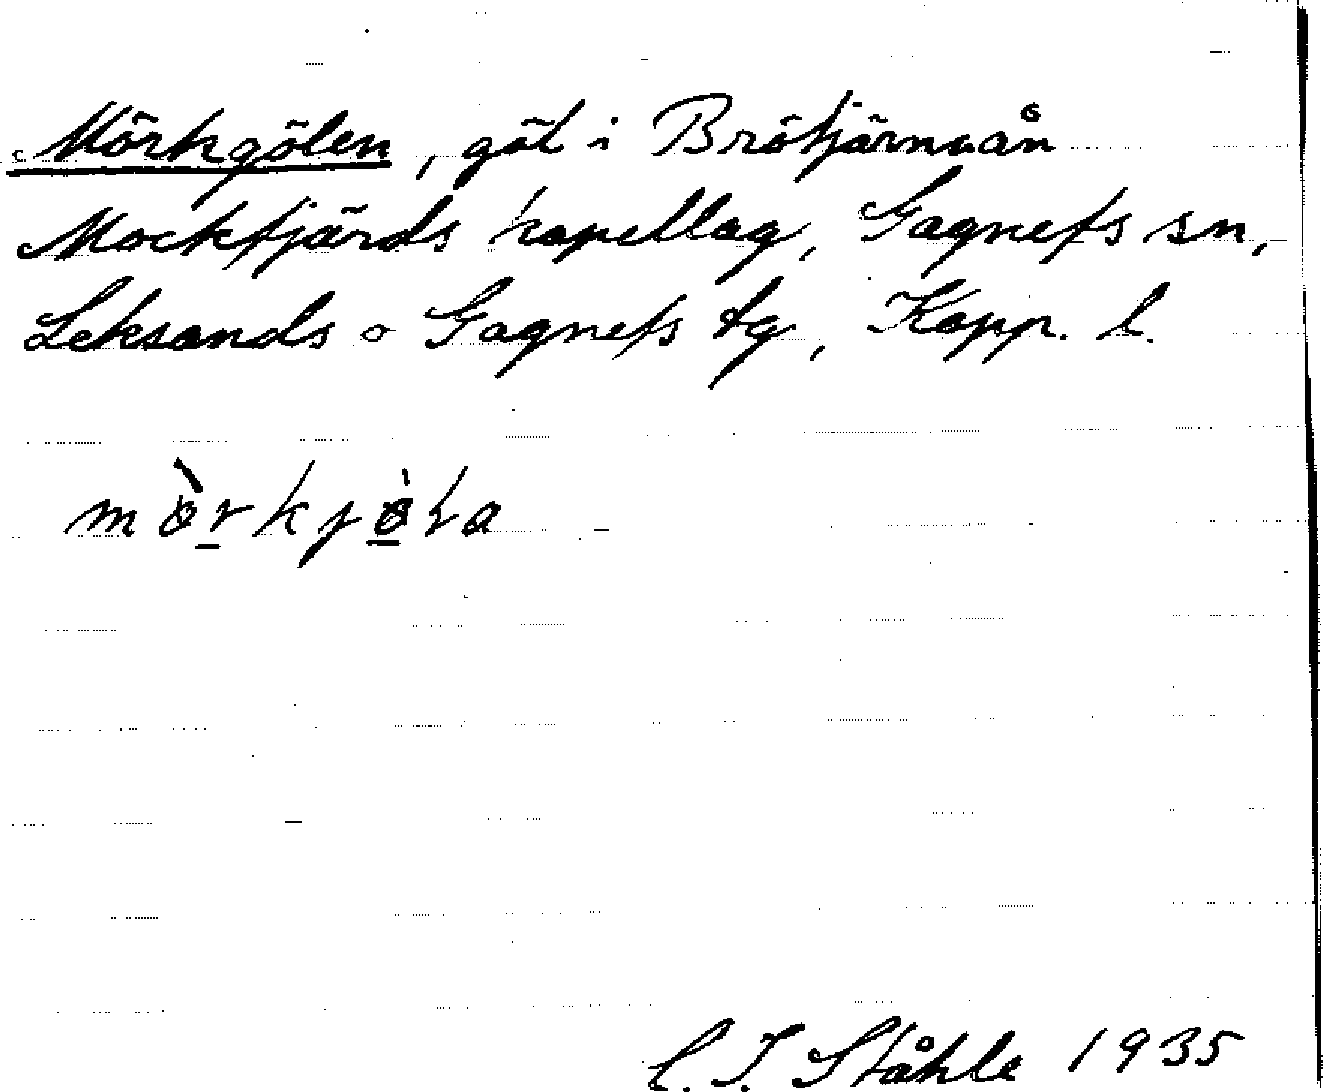 Mörkgölen, göl i Brötjärnaån
Mockfjärds kapellag, Gagnefs sn,
Leksands o Gagnefs tg, Kopp. l.
C. I. Ståhle 1935